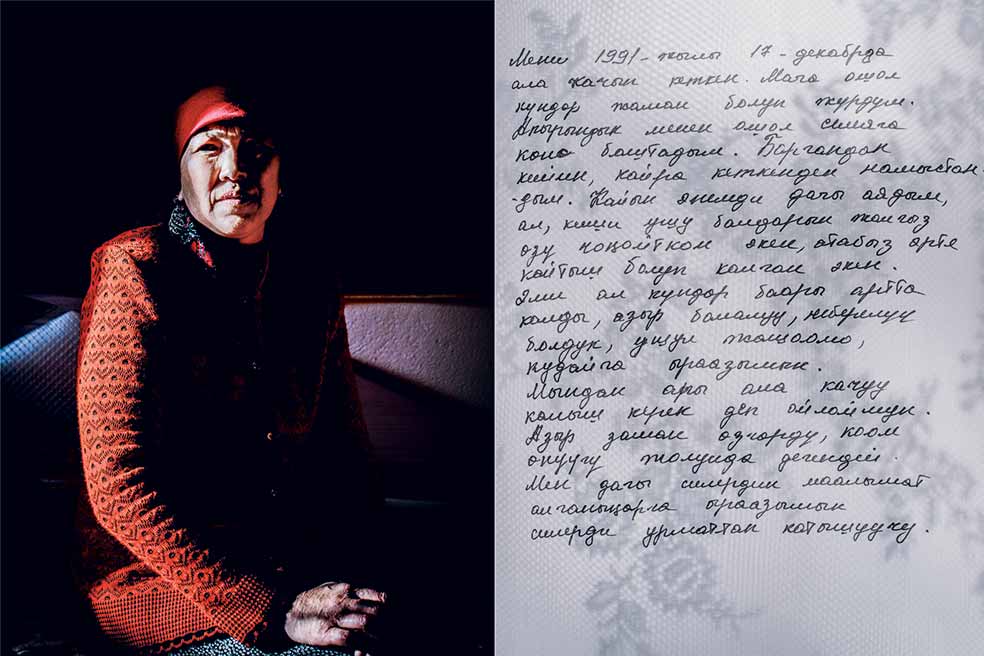 Мени 1991-жылы 17-декабрда
ала качып кеткен. Мага ошол
күндөр жаман болуп жүрдүм.
Акырындык менен ошол симяга
көнө баштадым. Баргандан
кийин, кайра кеткенден намыстан-
-дым. Кайын энемди дагы аядым,
ал, киши ушу балдарын жалгыз
өзү чоңойткон экен, атабыз эрте
кайтыш болуп калган экен.
Эми ал күндөр баары артта
калды, азыр балалуу, неберелүү
болдук, ушул жашообо,
кудайга ыраазымын.
Мындан ары ала качуу
калыш керек деп ойлоймун.
Азыр заман өзгөрдү, коом
өнүгүү жолунда дегендей.
Мен дагы силердин маалымат
алганыңарга ыраазымын
силерди урматтап катышуучу.